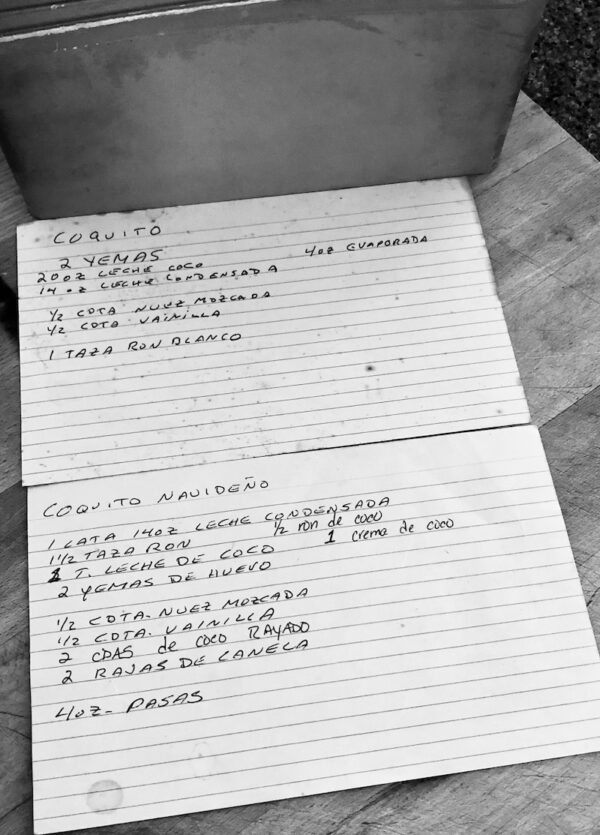 COQUITO
2 YEMAS
20OZ LECHE COCO 4OZ EVAPORADA
14 OZ LECHE CONDENSADA
1/2 CDTA NUEZ MOZCADA
1/2 CDTA VAINILLA
1 TAZA RON BLANCO
COQUITO NAVIDEÑO
1 LATA 14OZ LECHE CONDENSADA
1 1/2 TAZA RON 1/2 ron de coco
1 T. LECHE DE COCO 1 crema de coco
2 YEMAS DE HUEVO
1/2 CDTA. NUEZ MOZCADA
1/2 CDTA. VAINILLA
2 CDAS de coco RAYADO
2 RAJAS DE CANELA
4OZ- PASAS